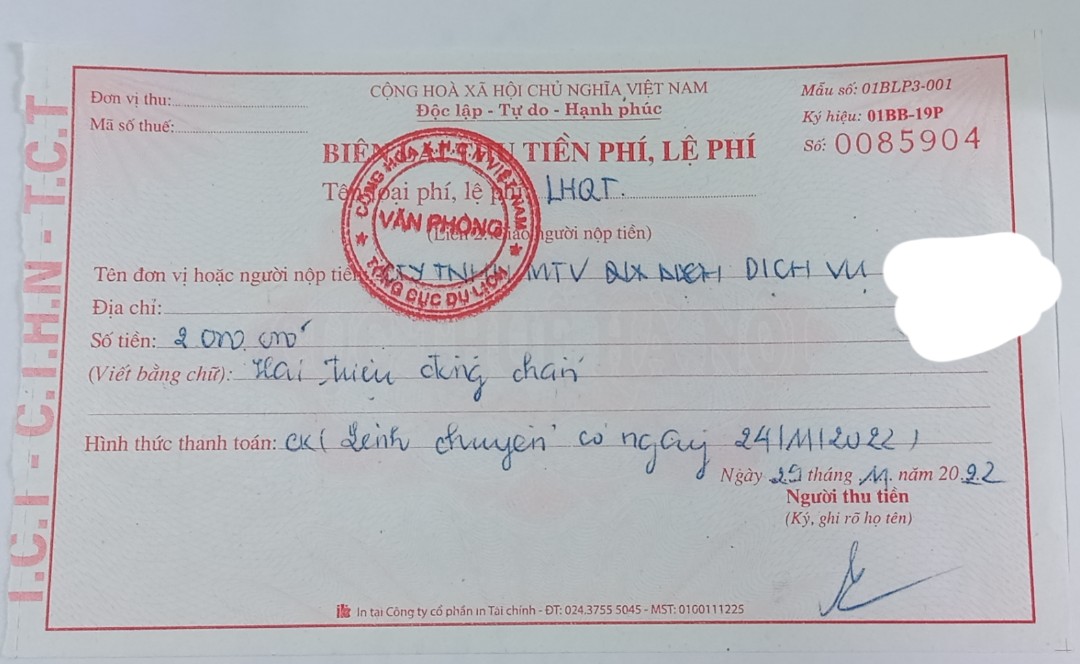 Đơn vị thu:
Mã số thuế:
CỘNG HOÀ XÃ HỘI CHỦ NGHĨA VIỆT NAM
Độc lập - Tự do - Hạnh phúc
Mẫu số: 01BLP3-001
Ký hiệu: 01BB-19P
Số: 0085904
BIÊN LAI THU TIỀN PHÍ, LỆ PHÍ
Tên loại phí, lệ phí: LHQT
(Liên 2: Giao người nộp tiền)
CỘNG HOÀ X.H.C.N VIỆT NAM
VĂN PHÒNG
TỔNG CỤC DU LỊCH
Tên đơn vị hoặc người nộp tiền: CTY TNHH MTV DỊCH VỤ
Địa chỉ:
Số tiền: 2.000.000đ
(Viết bằng chữ): Hai triệu đồng chẵn
Hình thức thanh toán: CK( Lệnh chuyển có ngày 24/11/2022)
Ngày 29 tháng 11 năm 2022
Người thu tiền
(Ký, ghi rõ họ tên)
In tại Công ty cổ phần in Tài chính - ĐT: 024.3755 5045 - MST: 0100111225
I.C.T - C.I.H.N - T.C.T